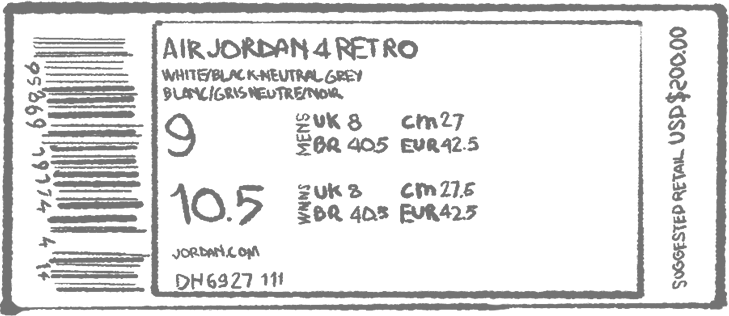 AIR JORDAN 4 RETRO
WHITE/BLACK-NEUTRAL GREY
BLANC/GRIS NEUTRE/NOIR
9
MENS
UK 8 cm 27
BR 40.5 EUR 42.5
10.5
WMNS
UK 8 cm 27.5
BR 40.5 EUR 42.5
JORDAN.COM
DH6927 111
SUGGESTED RETAIL USD $200.00